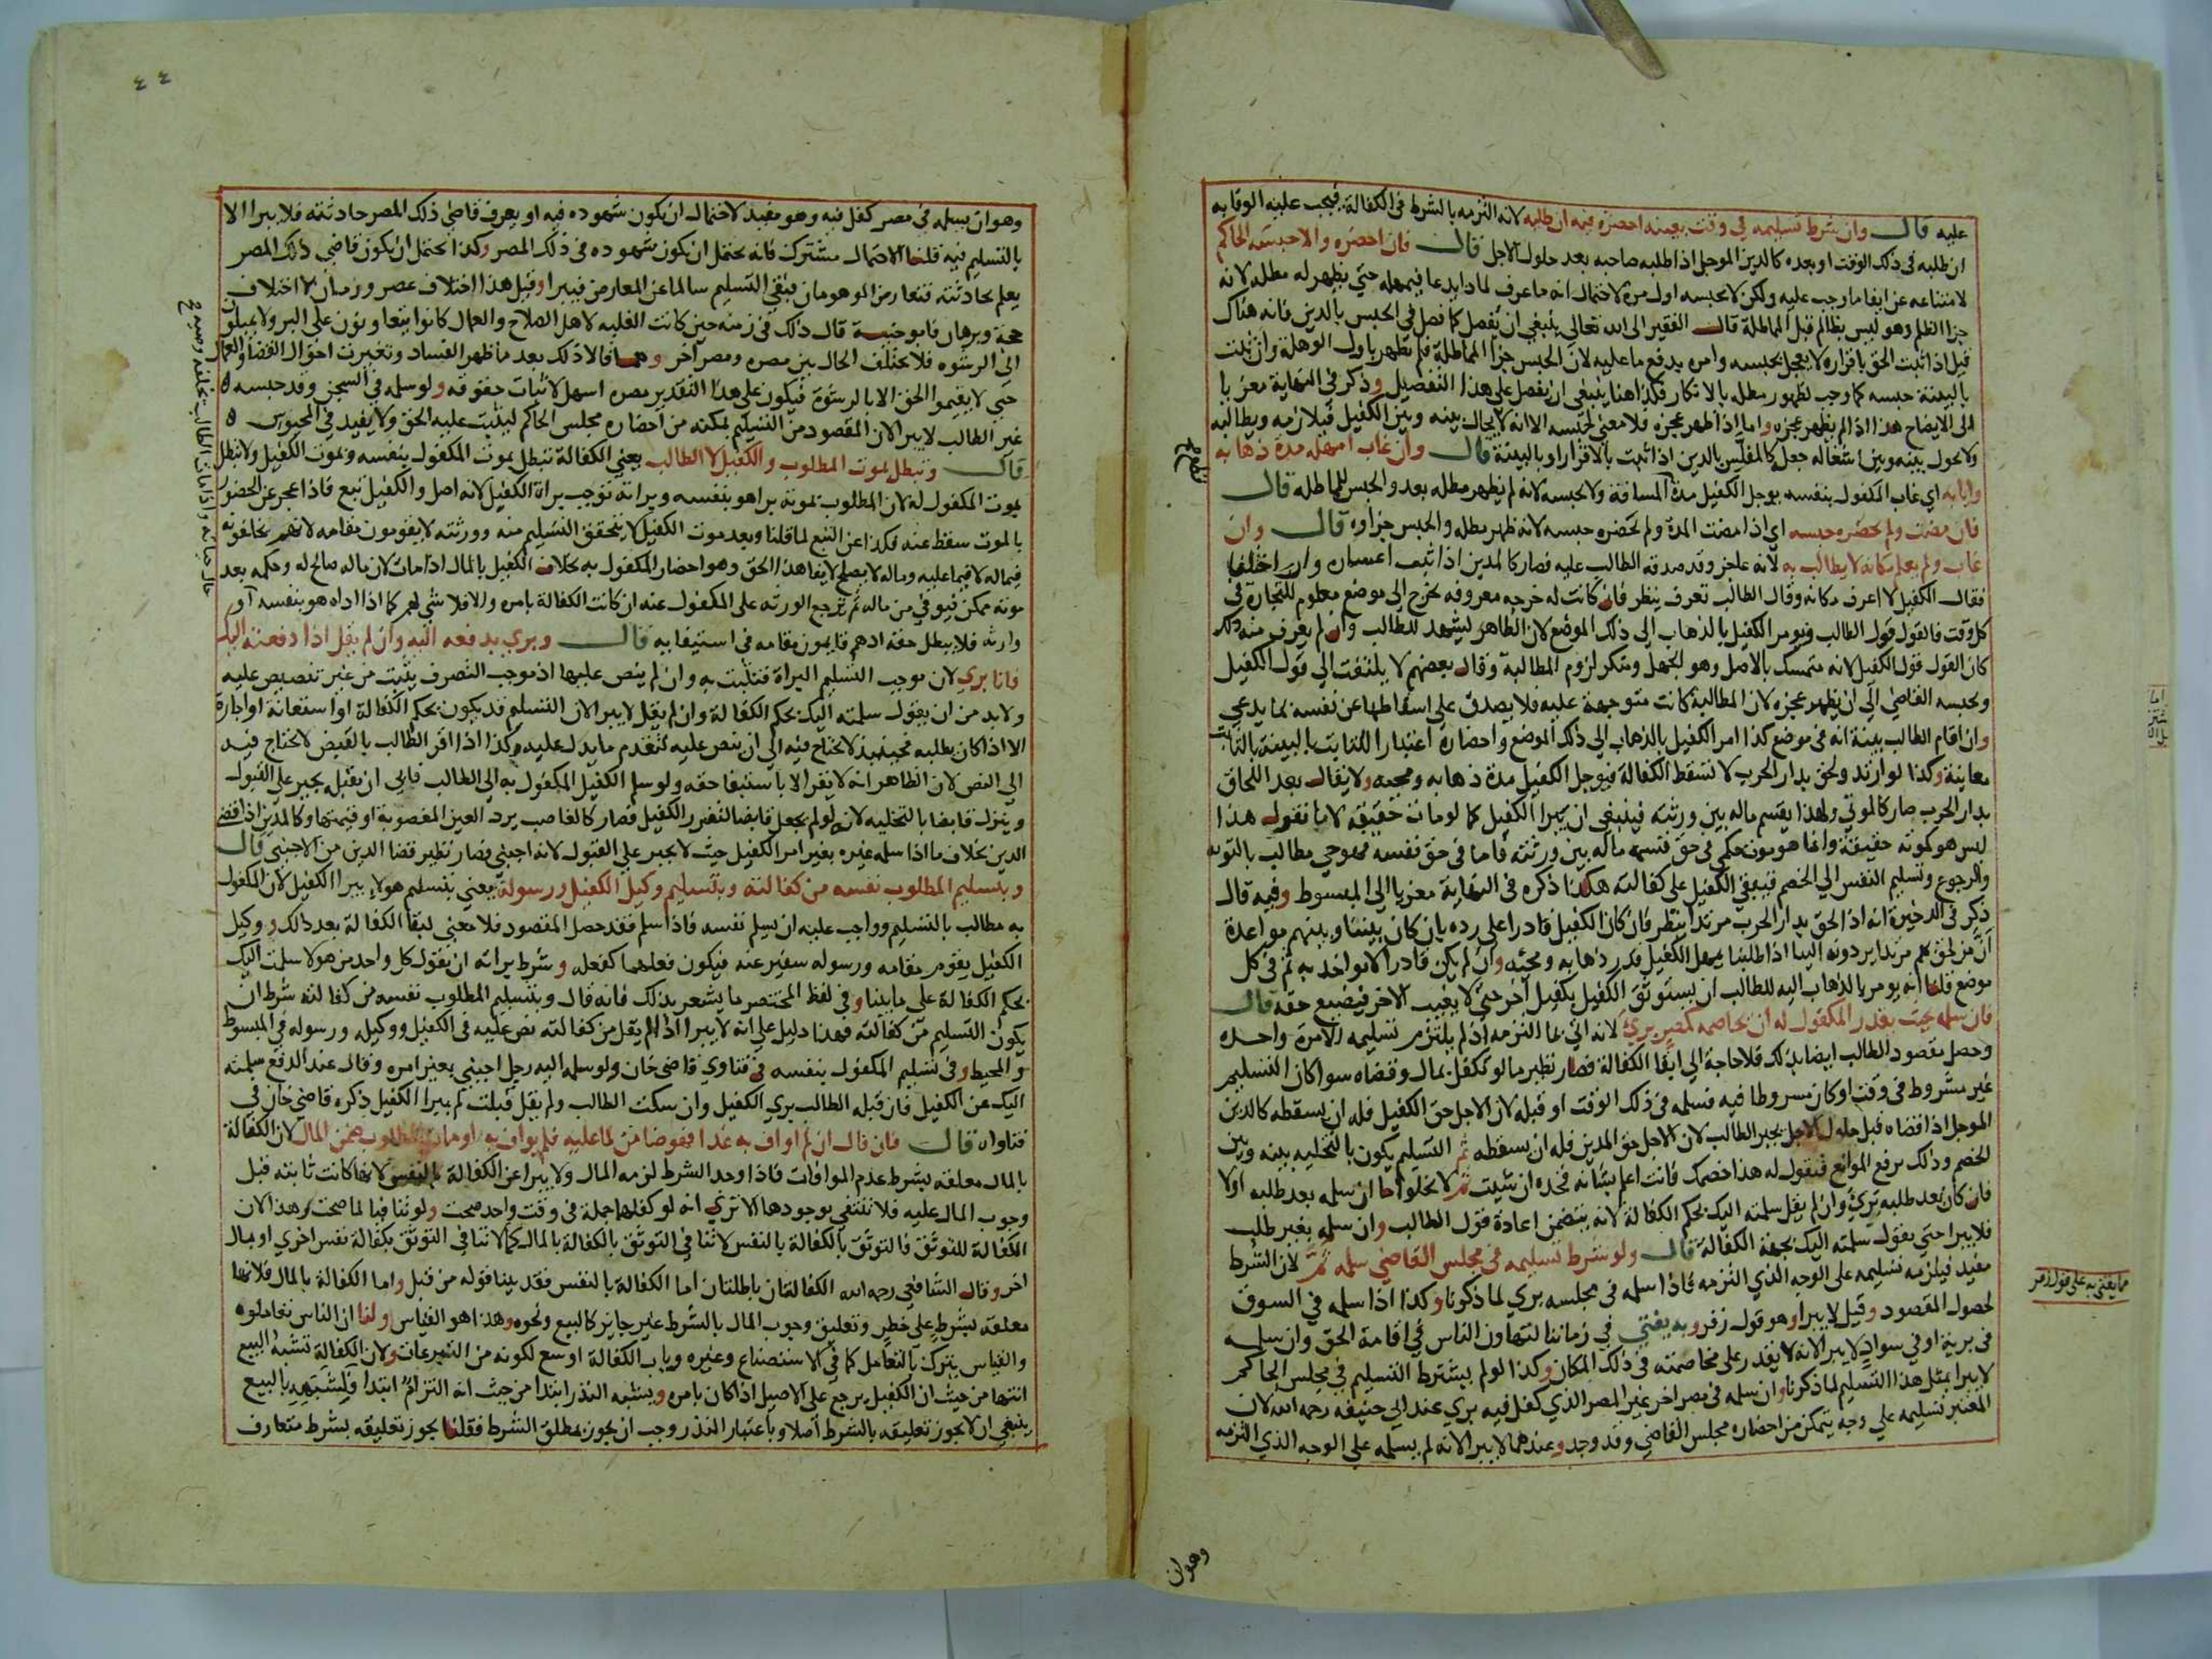 عليه قال وان شرط تسليمه في وقت بعينه احضره فيه ان طلبه لانه التزمه بالشرط في الكفالة فيجب عليه الوفا به
ان طلبه في ذلك الوقت او بعده كالدين الموجل اذا طلبه صاحبه بعد حلول الاجل قال فان احضره والا حبسه الحاكم
لامتناعه عن ايفا ما وجب عليه ولكن لا يحبسه اول مرة لاحتمال انه ما عرف لماذا يدعا فيمهله حتي يظهر له مطله لانه
جزا الظلم وهو ليس بظالم قبل المماطلة قال الفقير الى الله تعالى ينبغي ان يفصل كما فصل في الحبس بالدين فانه هناك
قيل اذا ثبت الحق باقراره لا يعجل بحبسه وامره بدفع ما عليه لان الحبس جزا المماطلة فلم تظهر باول الوهلة وان ثبت
بالبينة حبسه كما وجب لظهور مطله بالانكار فكذا هنا ينبغي ان يفصل على هذا التفصيل وذكر في النهاية معزيا
الى الايضاح هذا اذا لم يظهر عجزه واما اذا ظهر عجزه فلا معنى لحبسه الا انه لا يحال بينه وبين الكفيل فيلازمه ويطالبه
ولا يحول بينه وبين اشغاله جعل كالمفلس بالدين اذا ثبت بالاقرار او بالبينة قال وان غاب امهله مدة ذهابه
وايابه اي غاب المكفول بنفسه يوجل الكفيل مدة المسافة ولا يحبسه لانه لم يظهر مطله بعد والحبس للمماطله قال
فان مضت ولم يحضره حبسه اي اذا مضت المدة ولم يحضره حبسه لانه ظهر مطله والحبس جزاوه قال وان
غاب ولم يعلم مكانه لا يطالب به لانه عاجز وقد صدقه الطالب عليه فصار كالمدين اذا ثبت اعساره وان اختلفا
فقال الكفيل لا اعرف مكانه وقال الطالب تعرف ينظر فان كانت له خرجه معروفه يخرج الى موضع معلوم للتجارة في
كل وقت فالقول قول الطالب ويومر الكفيل بالذهاب الى ذلك الموضع لان الظاهر يشهد للطالب وان لم يعرف منه ذلك
كان القول قول الكفيل لانه متمسك بالاصل وهو الجهل ومنكر لزوم المطالبة وقال بعضهم لا يلتفت الى قول الكفيل
ويحبسه القاضي الى ان يظهر عجزه لان المطالبة كانت متوجهة عليه فلا يصدق على اسقاطها عن نفسه بما يدعي
وان اقام الطالب بينة انه في موضع كذا امر الكفيل بالذهاب الى ذلك الموضع واحضاره اعتبارا للثابت بالبينة بالثابت
معاينة وكذا لو ارتد ولحق بدار الحرب لا تسقط الكفالة فيوجل الكفيل مدة ذهابه ومجيئه ولا يقال بعد اللحاق
بدار الحرب صار كالموتي ولهذا يقسم ماله بين ورثته فينبغي ان يبرا الكفيل كما لو مات حقيقة لانا نقول هذا
ليس هو كموته حقيقة وانما هو موت حكمي في حق قسمة ماله بين ورثته فاما في حق نفسه فهو حي مطالب بالتوبة
والرجوع وتسليم النفس الى الخصم فيبقي الكفيل على كفالته هكذا ذكره في النهاية معزيا الى المبسوط وفيه قال
ذكر في الذخيرة انه اذا لحق بدار الحرب مرتدا ينظر فان كان الكفيل قادرا على رده بان كان بيننا وبينهم مواعدة
ان من لحق بهم مرتدا يردونه الينا اذا طلبنا يمهل الكفيل قدر ذهابه ومجيئه وان لم يكن قادرا لا يواخذ به ثم في كل
موضع قلنا انه يومر بالذهاب اليه للطالب ان يستوثق الكفيل بكفيل اخر حتى لا يغيب الاخر فيضيع حقه قال
فان سلمه بحيث يقدر المكفول له ان يخاصمه كمصر بري لانه اتي بما التزمه اذ لم يلتزم تسليمه الا مرة واحده
وحصل مقصود الطالب ايضا بذلك فلا حاجة الى ابقا الكفالة فصار نظير ما لو تكفل بمال وقضاه سوا كان التسليم
غير مشروط في وقت او كان مشروطا فيه فسلمه في ذلك الوقت او قبله لان الاجل حق الكفيل فله ان يسقطه كالدين
الموجل اذا قضاه قبل حلول الاجل يجبر الطالب لان الاجل حق المدين فله ان يسقطه ثم التسليم يكون بالتخليه بينه وبين
الخصم وذلك برفع الموانع فيقول له هذا خصمك فانت اعلم بشانه فخذه ان شئت ثم لا يخلوا اما ان سلمه بعد طلبه اولا
فان كان بعد طلبه بري وان لم يقل سلمته اليك بحكم الكفالة لانه يتضمن اعادة قول الطالب وان سلمه بغير طلب
فلا يبرا حتى يقول سلمته اليك بجهة الكفالة قال ولو شرط تسليمه في مجلس القاضي سلمه ثمة لان الشرط
مفيد فيلزمه تسليمه على الوجه الذي التزمه فاذا سلمه في مجلسه بري لما ذكرنا وكذا اذا سلمه في السوق
لحصول المقصود وقيل لا يبرا وهو قول زفر وبه يفتي في زماننا لتهاون الناس في اقامة الحق وان سلمه
في برية او في سواد لا يبرا لانه لا يقدر على مخاصمته في ذلك المكان وكذا لو لم يشترط التسليم في مجلس الحاكم
لا يبرا بمثل هذا التسليم لما ذكرنا وان سلمه في مصر اخر غير المصر الذي كفل فيه بري عند ابي حنيفه رحمه الله لان
المعتبر تسليمه على وجه يتمكن من احضاره مجلس القاضي وقد وجد وعندهما لا يبرا لانه لم يسلمه على الوجه الذي التزمه
مما يفتى به على قول زفر
وهو ان
٤٤
وهو ان يسلمه في مصر كفل فيه وهو مفيد لاحتمال ان يكون شهوده فيه او يعرف قاضي ذلك المصر حادثته فلا يبرا الا
بالتسليم فيه قلنا الاحتمال مشترك فانه يحتمل ان يكون شهوده في ذلك المصر وكذا يحتمل ان يكون قاضي ذلك المصر
يعلم بحادثته فتعارض الموهومان فبقي التسليم سالما عن المعارض فيبرا وقيل هذا اختلاف عصر وزمان لا اختلاف
حجة وبرهان فابو حنيفة قال ذلك في زمنه حين كانت الغلبه لاهل الصلاح والعمال كانوا يتعاونون على البر ولا يميلون
الى الرشوه فلا يختلف الحال بين مصره ومصر آخر وهما قالا ذلك بعد ما ظهر الفساد وتغيرت احوال القضاة والعمال
حتى لا يقيموا الحق الا بالرشوة فيكون على هذا التقدير مصره اسهل لاثبات حقوقه ولو سلمه في السجن وقد حبسه
غير الطالب لا يبرا لان المقصود من التسليم تمكنه من احضاره مجلس الحاكم ليثبت عليه الحق ولا يفيد في المحبوس
قال وتبطل بموت المطلوب والكفيل لا الطالب يعني الكفالة تبطل بموت المكفول بنفسه وبموت الكفيل ولا تبطل
بموت المكفول له لان المطلوب بموته برا هو بنفسه وبراته توجب براة الكفيل لانه اصل والكفيل تبع فاذا عجز عن الحضور
بالموت سقط عنه فكذا عن التبع لما قلنا وبعد موت الكفيل لا يتحقق التسليم منه وورثته لا يقومون مقامه لانهم يخلفونه
فيما له لا فيما عليه وماله لا يصلح لايفا هذا الحق وهو احضار المكفول به بخلاف الكفيل بالمال اذا مات لان ماله صالح له وحكمه بعد
موته ممكن فيوفي من ماله ثم ترجع الورثه على المكفول عنه ان كانت الكفالة بامره والا فلا شي لهم كما اذا اداه هو بنفسه او
وارثه فلا يبطل حقه اذ هم قايمون مقامه في استيفايه قال وبري بدفعه اليه وان لم يقل اذا دفعته اليك
فانا بري لان موجب التسليم البراة فتثبت به وان لم ينص عليها اذ موجب التصرف يثبت من غير تنصيص عليه
ولا بد من ان يقول سلمته اليك بحكم الكفالة وان لم يقل لا يبرا لان التسليم قد يكون بحكم الكفالة او استعانة او اجارة
الا اذا كان يطلبه فحينيذ لا يحتاج فيه الى ان ينص عليه لتقدم ما يدل عليه وكذا اذا اقر الطالب بالقبض لا يحتاج فيه
الى النص لان الظاهر انه لا يقر الا باستيفا حقه ولو سلم الكفيل المكفول به الى الطالب فابى ان يقبله يجبر على القبول
وينزل قابضا بالتخليه لانه لو لم يجعل قابضا لتضرر الكفيل فصار كالغاصب يرد العين المغصوبة او قيمتها وكالمدين اذا قضى
الدين بخلاف ما اذا سلمه غيره بغير امر الكفيل حيث لا يجبر على القبول لانه اجنبي فصار نظير قضا الدين من الاجنبي قال
وبتسليم المطلوب نفسه من كفالته وبتسليم وكيل الكفيل ورسوله يعني بتسليم هولاء يبرا الكفيل لان المكفول
به مطالب بالتسليم وواجب عليه ان يسلم نفسه فاذا سلم فقد حصل المقصود فلا معنى لبقا الكفالة بعد ذلك ووكيل
الكفيل يقوم مقامه ورسوله سفير عنه فيكون فعلهما كفعله وشرط براته ان يقول كل واحد من هولا سلمت اليك
بحكم الكفالة على ما بينا وفي لفظ المختصر ما يشعر بذلك فانه قال وبتسليم المطلوب نفسه من كفالته شرط ان
يكون التسليم من كفالته فهذا دليل على انه لا يبرا اذا لم يقل من كفالته نص عليه في الكفيل ووكيله ورسوله في المبسوط
والمحيط وفي تسليم المكفول بنفسه في فتاوي قاضي خان ولو سلمه اليه رجل اجنبي بغير امره وقال عند الدفع سلمته
اليك عن الكفيل فان قبله الطالب بري الكفيل وان سكت الطالب ولم يقل قبلت لم يبرا الكفيل ذكره قاضي خان في
فتاواه قال فان قال ان لم اواف به غدا فهو ضامن لما عليه فلم يواف به او مات المطلوب ضمن المال لان الكفالة
بالمال معلقه بشرط عدم الموافات فاذا وجد الشرط لزمه المال ولا يبرا عن الكفالة بالنفس لانها كانت ثابته قبل
وجوب المال عليه فلا تنتفي بوجودها الا تري انه لو كفلهما جملة في وقت واحد صحت ولو تنافيا لما صحت وهذا لان
الكفالة للتوثق والتوثق بالكفالة بالنفس لا تنافي التوثق بالكفالة بالمال كما لا تنافي التوثق بكفالة نفس اخري او بمال
اخر وقال الشافعي رحمه الله الكفالتان باطلتان اما الكفالة بالنفس فقد بينا قوله من قبل واما الكفالة بالمال فلانها
معلقه بشرط على خطر وتعليق وجوب المال بالشرط غير جايز كالبيع ونحوه وهذا هو القياس ولنا ان الناس تعاملوه
والقياس يترك بالتعامل كما في الاستصناع وغيره وباب الكفالة اوسع لكونه من التبرعات ولان الكفالة تشبه البيع
انتها من حيث ان الكفيل يرجع على الاصيل اذا كان بامره ويشبه النذر ابتدا من حيث انه التزام ابتدا فلشبهه بالبيع
ينبغي ان لا يجوز تعليقه بالشرط اصلا وباعتبار النذر وجب ان يجوز بمطلق الشرط فقلنا يجوز تعليقه بشرط متعارف